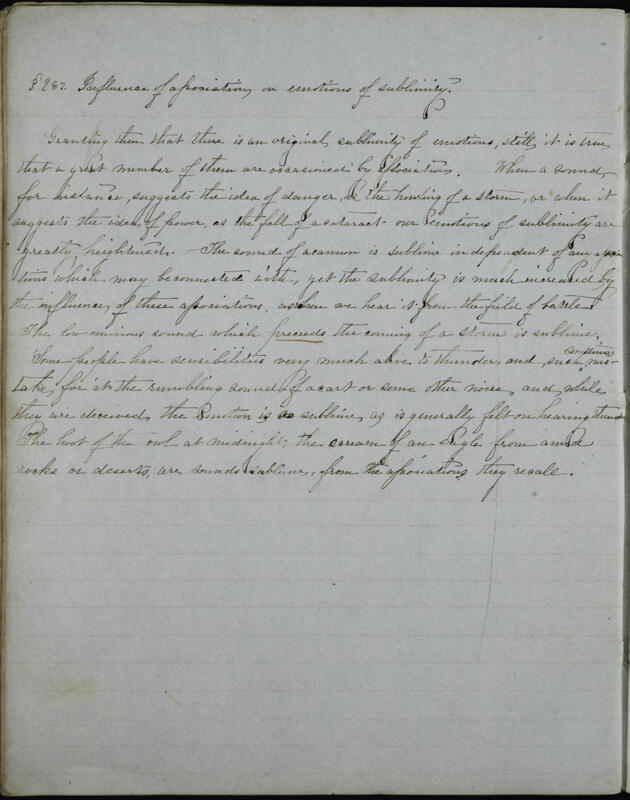 § 287. Influence of association, on emotions of sublimity.
Granting then that there is an original sublimity of emotions, still, it is true,
that a great number of them are occasioned by association. When a sound,
for instance, suggests the idea of danger, as the howling of a storm, or when it
suggests the idea of power, as the fall of a cataract our emotions of sublimity are
greatly heightened. The sound of a cannon is sublime independent of any associa
tions which may be connected with, yet the sublimity is much increased by
the influence of these associations, as when we hear it from the field of battle.
The low ominous sound which preceeds the coming of a storm is sublime.
Some people have sensibilities very much alive to thunder, and, such sometimes mis-
take, for it the rumbling sound of a cart or some other noise, and while
they are deceived, the Emotion is as sublime, as is generally felt on hearing thunder
The hoot of the owl at midnight, the scream of an Eagle from amid
rocks or deserts, are sounds sublime, from the associations they recall.